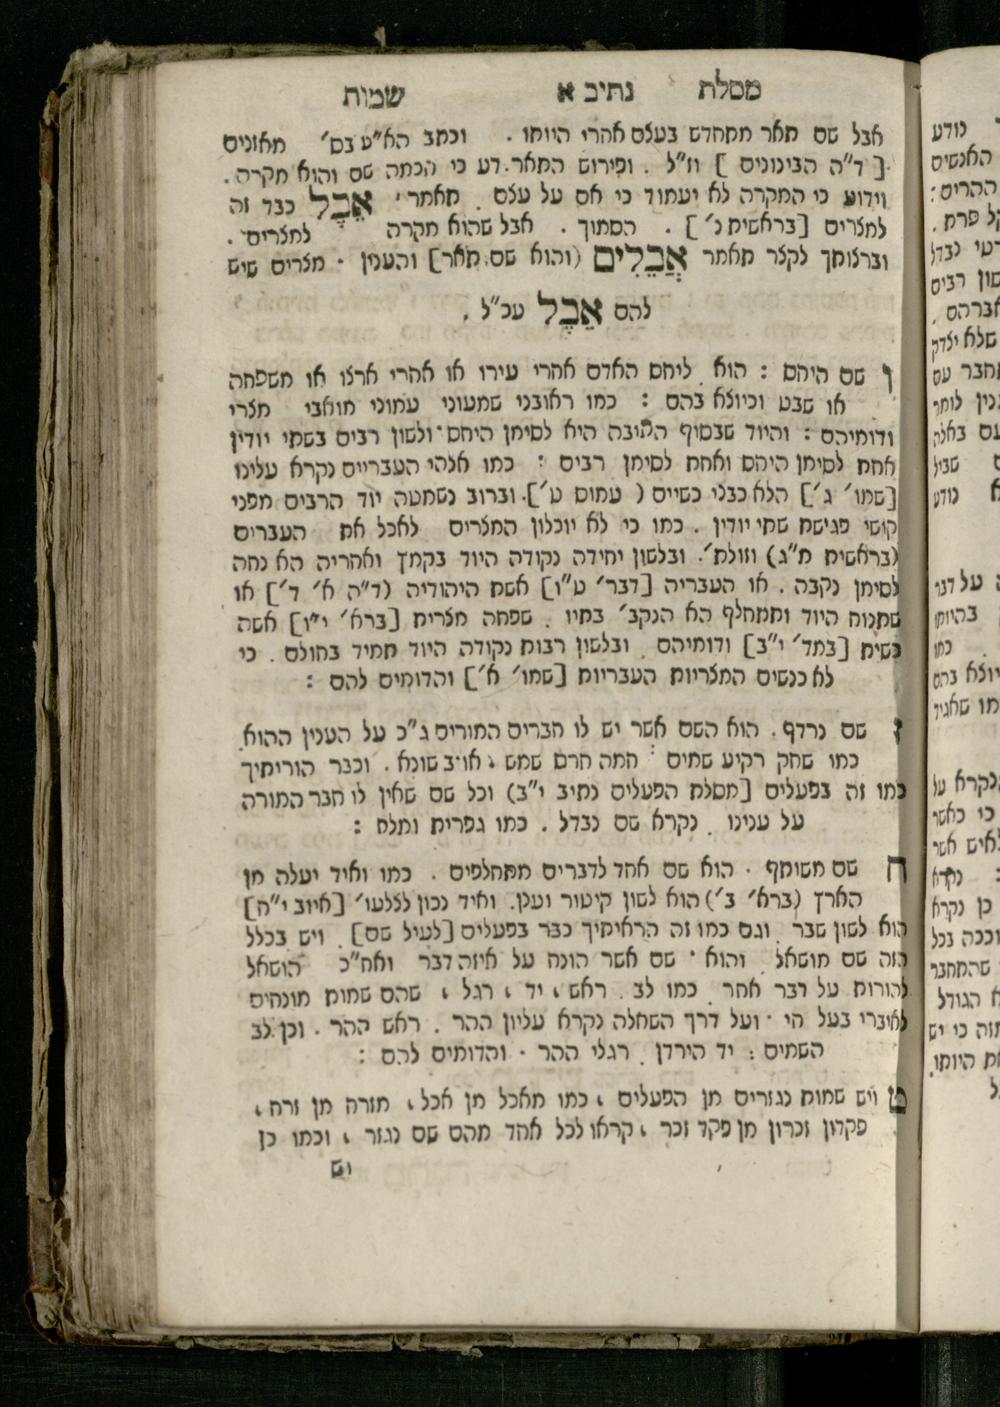 מסלת נתיב א שמות
אבל שם תאר מתחדש בעלם אחרי היותו . וכתב הא״ע בס׳ מאזנים
[ד״ה הבינונים ] וז״ל . ופירוש התאר . דע כי הכמה שם והוא מקרה .
וידוע כי המקרה לא יעמוד כי אם על עלם . תאמר׳ אֵבֶל כבד זה
למצרים [בראשית נ׳] . הסמוך . אבל שהוא מקרה למצרים .
וברצותך לקצר תאמר אֲבֵלִים (והוא שם תאר) והענין . מצרים שיש
להם אֵבֶל עכ״ל .
ו שם היחם : הוא ליחם האדם אחרי עירו או אחרי ארצו או משפחה
או שבט וכיוצא בהם : כמו ראובני שמעוני עמוני מואבי מצרי
ודומיהם : והיוד שבסוף התיבה היא לסימן היחם ולשון רבים בשתי יודין
אחת לסימן היהם ואחת לסימן רבים : כמו אלהי העבריים נקרא עלינו
[שמו׳ ג׳] הלא כבני כשיים ( עמוס ט׳]. וברוב נשמטה יוד הרבים מפני
קושי פגישת שתי יודין . כמו כי לא יוכלון המצרים לאכל את העברים
(בראשית מ״ג) וזולת׳. ובלשון יחידה נקודה היוד בקמץ ואחריה הא נחה
לסימן נקבה . או העבריה [דבר׳ ט״ו] אשת היהודיה (ד״ה א׳ ד׳] או
שתנוח היוד ותתחלף הא הנקב׳ בתיו . שפחה מצרית [ברא׳ י״ו] אשה
כשית [במד׳ י״ב] ודומיהם . ובלשון רבות נקודה היוד תמיד בחולם . כי
לא כנשים המצריות העבריות [שמו׳ א׳] והדומים להם :
ז שם נרדף . הוא השם אשר יש לו חברים המורים ג״כ על הענין ההוא
כמו שחק רקיע שמים : חמה חרם שמש . אויב שונא . וכבר הוריתיך
כמו זה בפעלים [מסלת הפעלים נתיב י״ב) וכל שם שאין לו חבר המורה
על ענינו . נקרא שם נבדל . כמו גפרית ומלח :
ח שם משותף . הוא שם אחד לדברים מתחלפים . כמו ואיד יעלה מן
הארץ (ברא׳ ב׳) הוא לשון קיטור וענן. ואיד נכון לצלעו׳ [איוב י״ח]
הוא לשון שבר וגם כמו זה הראיתיך כבר בפעלים [לעיל שם] . ויש בכלל
הזה שם מושאל . והוא שם אשר הונח על איזה דבר ואח״כ הושאל
להורות על דבר אחר . כמו לב . ראש , יד , רגל , שהם שמות מונחים
לאיברי בעל חי . ועל דרך השאלה נקרא עליון ההר . ראש ההר . וכן לב
השמים : יד הירדן . רגלי ההר . והדומים להם :
ט ויש שמות נגזרים מן הפעלים , כמו מאכל מן אכל , מזרח מן זרח ,
פקדון זכרון מן פקד זכר , קראו לכל אחד מהם שם נגזר , וכמו כן
וש